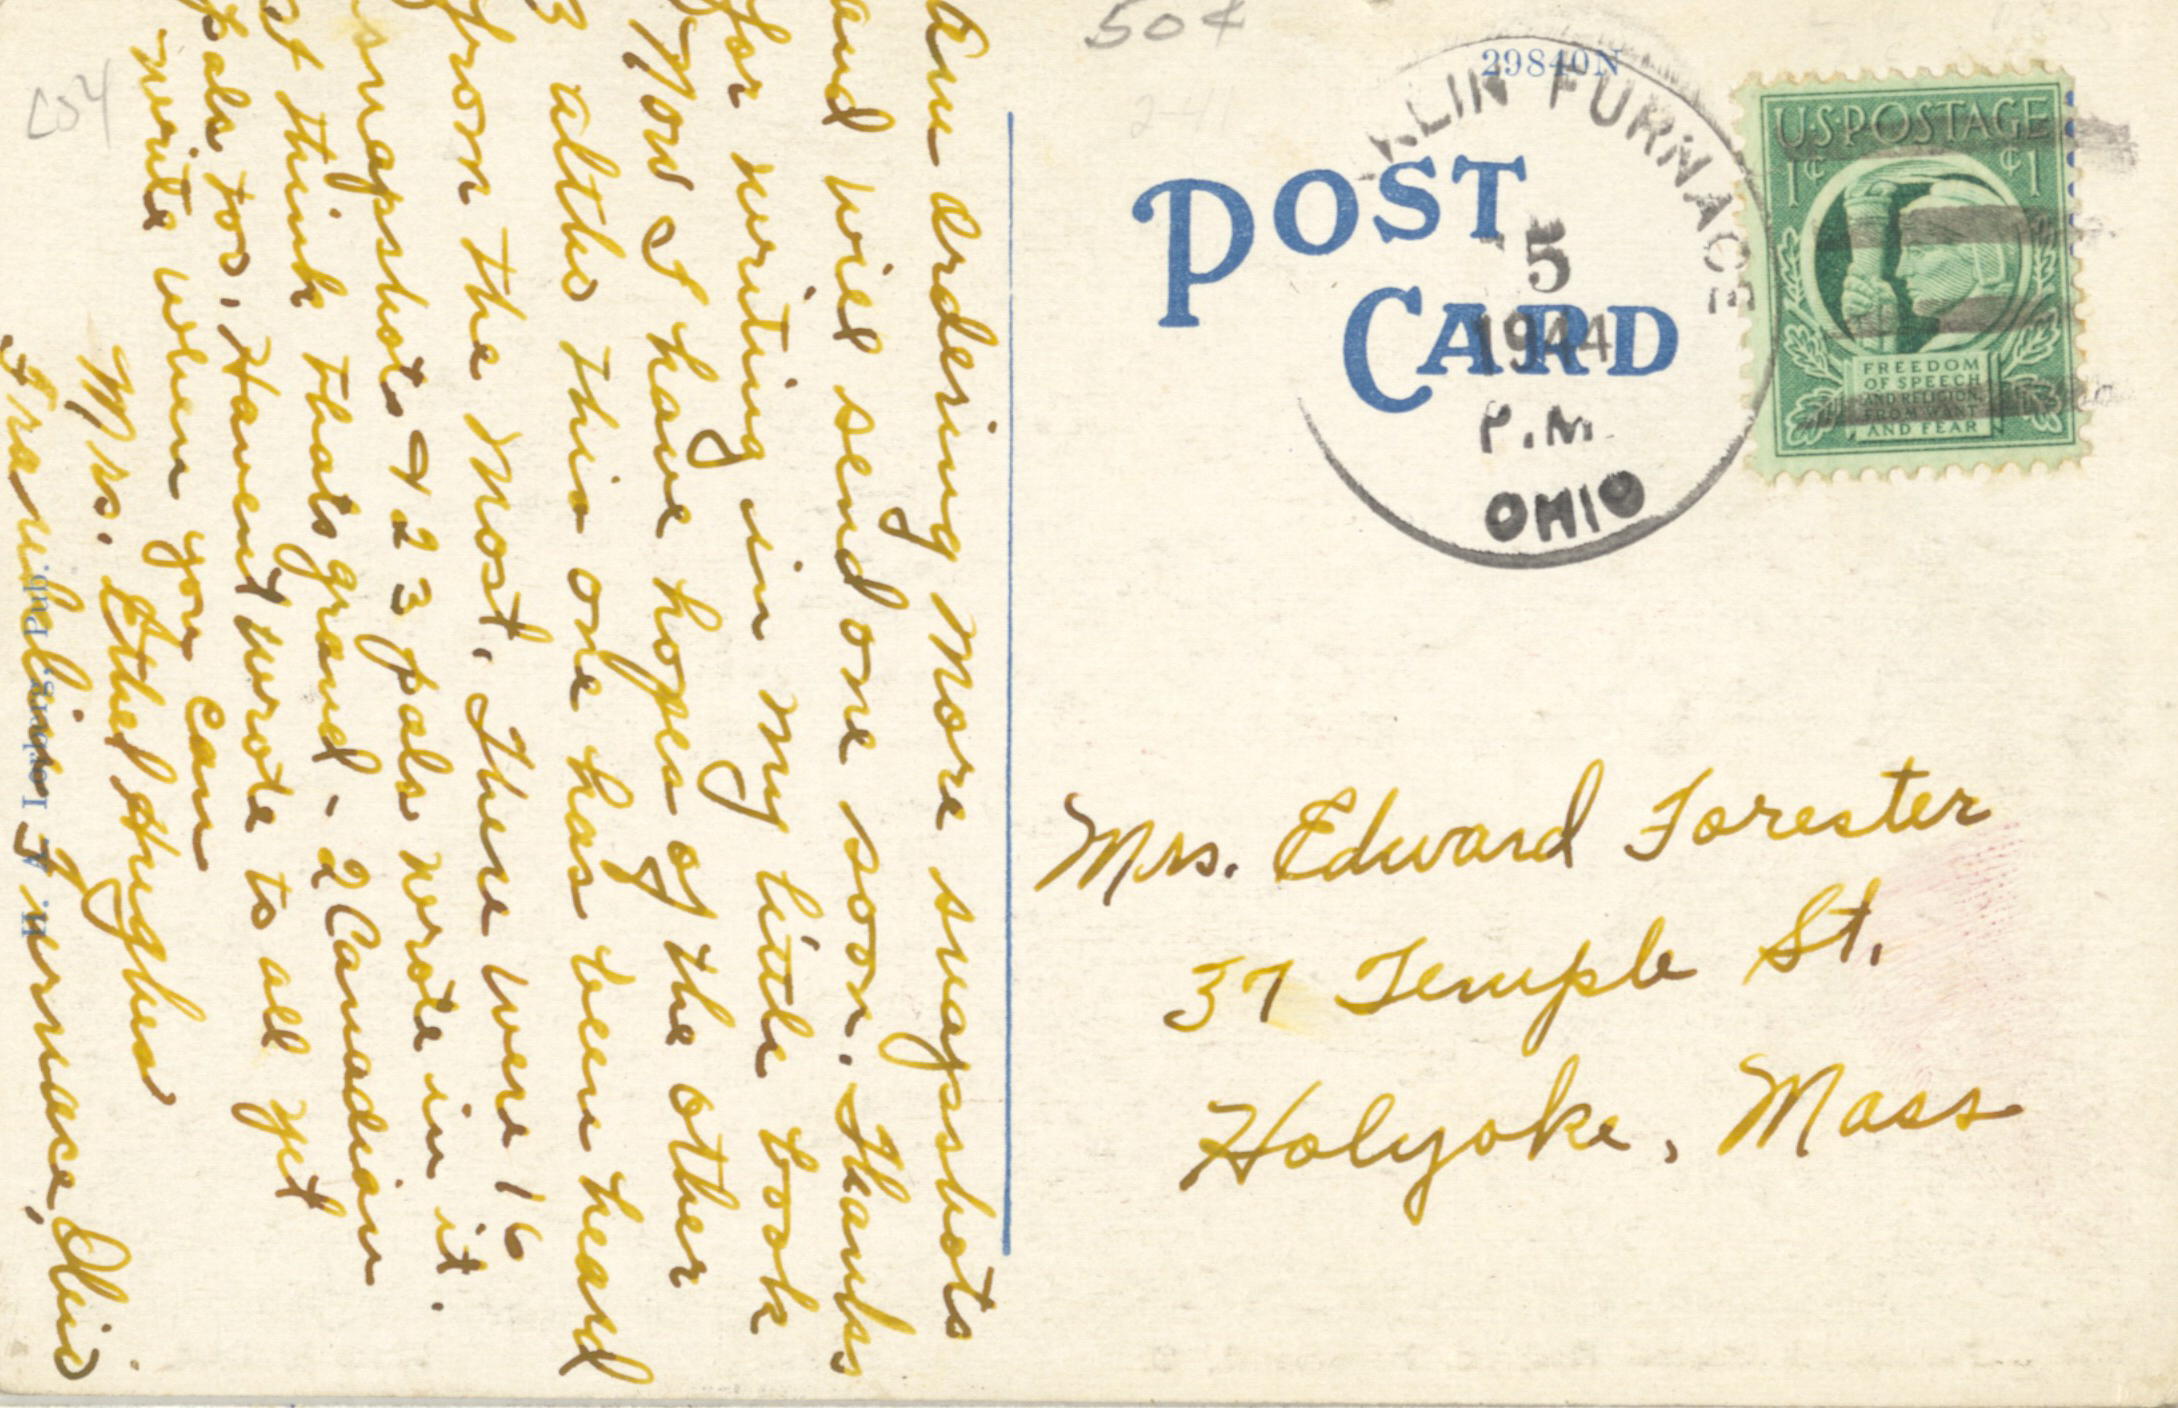 Am ordering more snapshots
and will send one soon. Thanks
for writing in my little book
Now I have hopes of the other
3 altho this one has been heard
from the most. There were 16
snapshots & 23 pals wrote in it.
I think thats grand - 2 Canadian
pals too. Havent wrote to all yet
write when you can
Mrs. Ethel Hughes
Franklin Furnace, Ohio
50¢
29840N
POST
CARD
KLIN FURNACE
5
1944
P.M.
OHIO
U·S·POSTAGE
1¢ ¢1
FREEDOM
OF SPEECH
AND RELIGION,
FROM WANT
AND FEAR
Mrs. Edward Forester
37 Temple St.
Holyoke, Mass